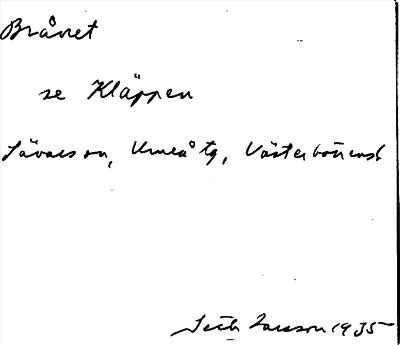 Brånet
se Kläppen
Sävars sn, Umeå tg, Västerbottensl
Seth Larsson 1935